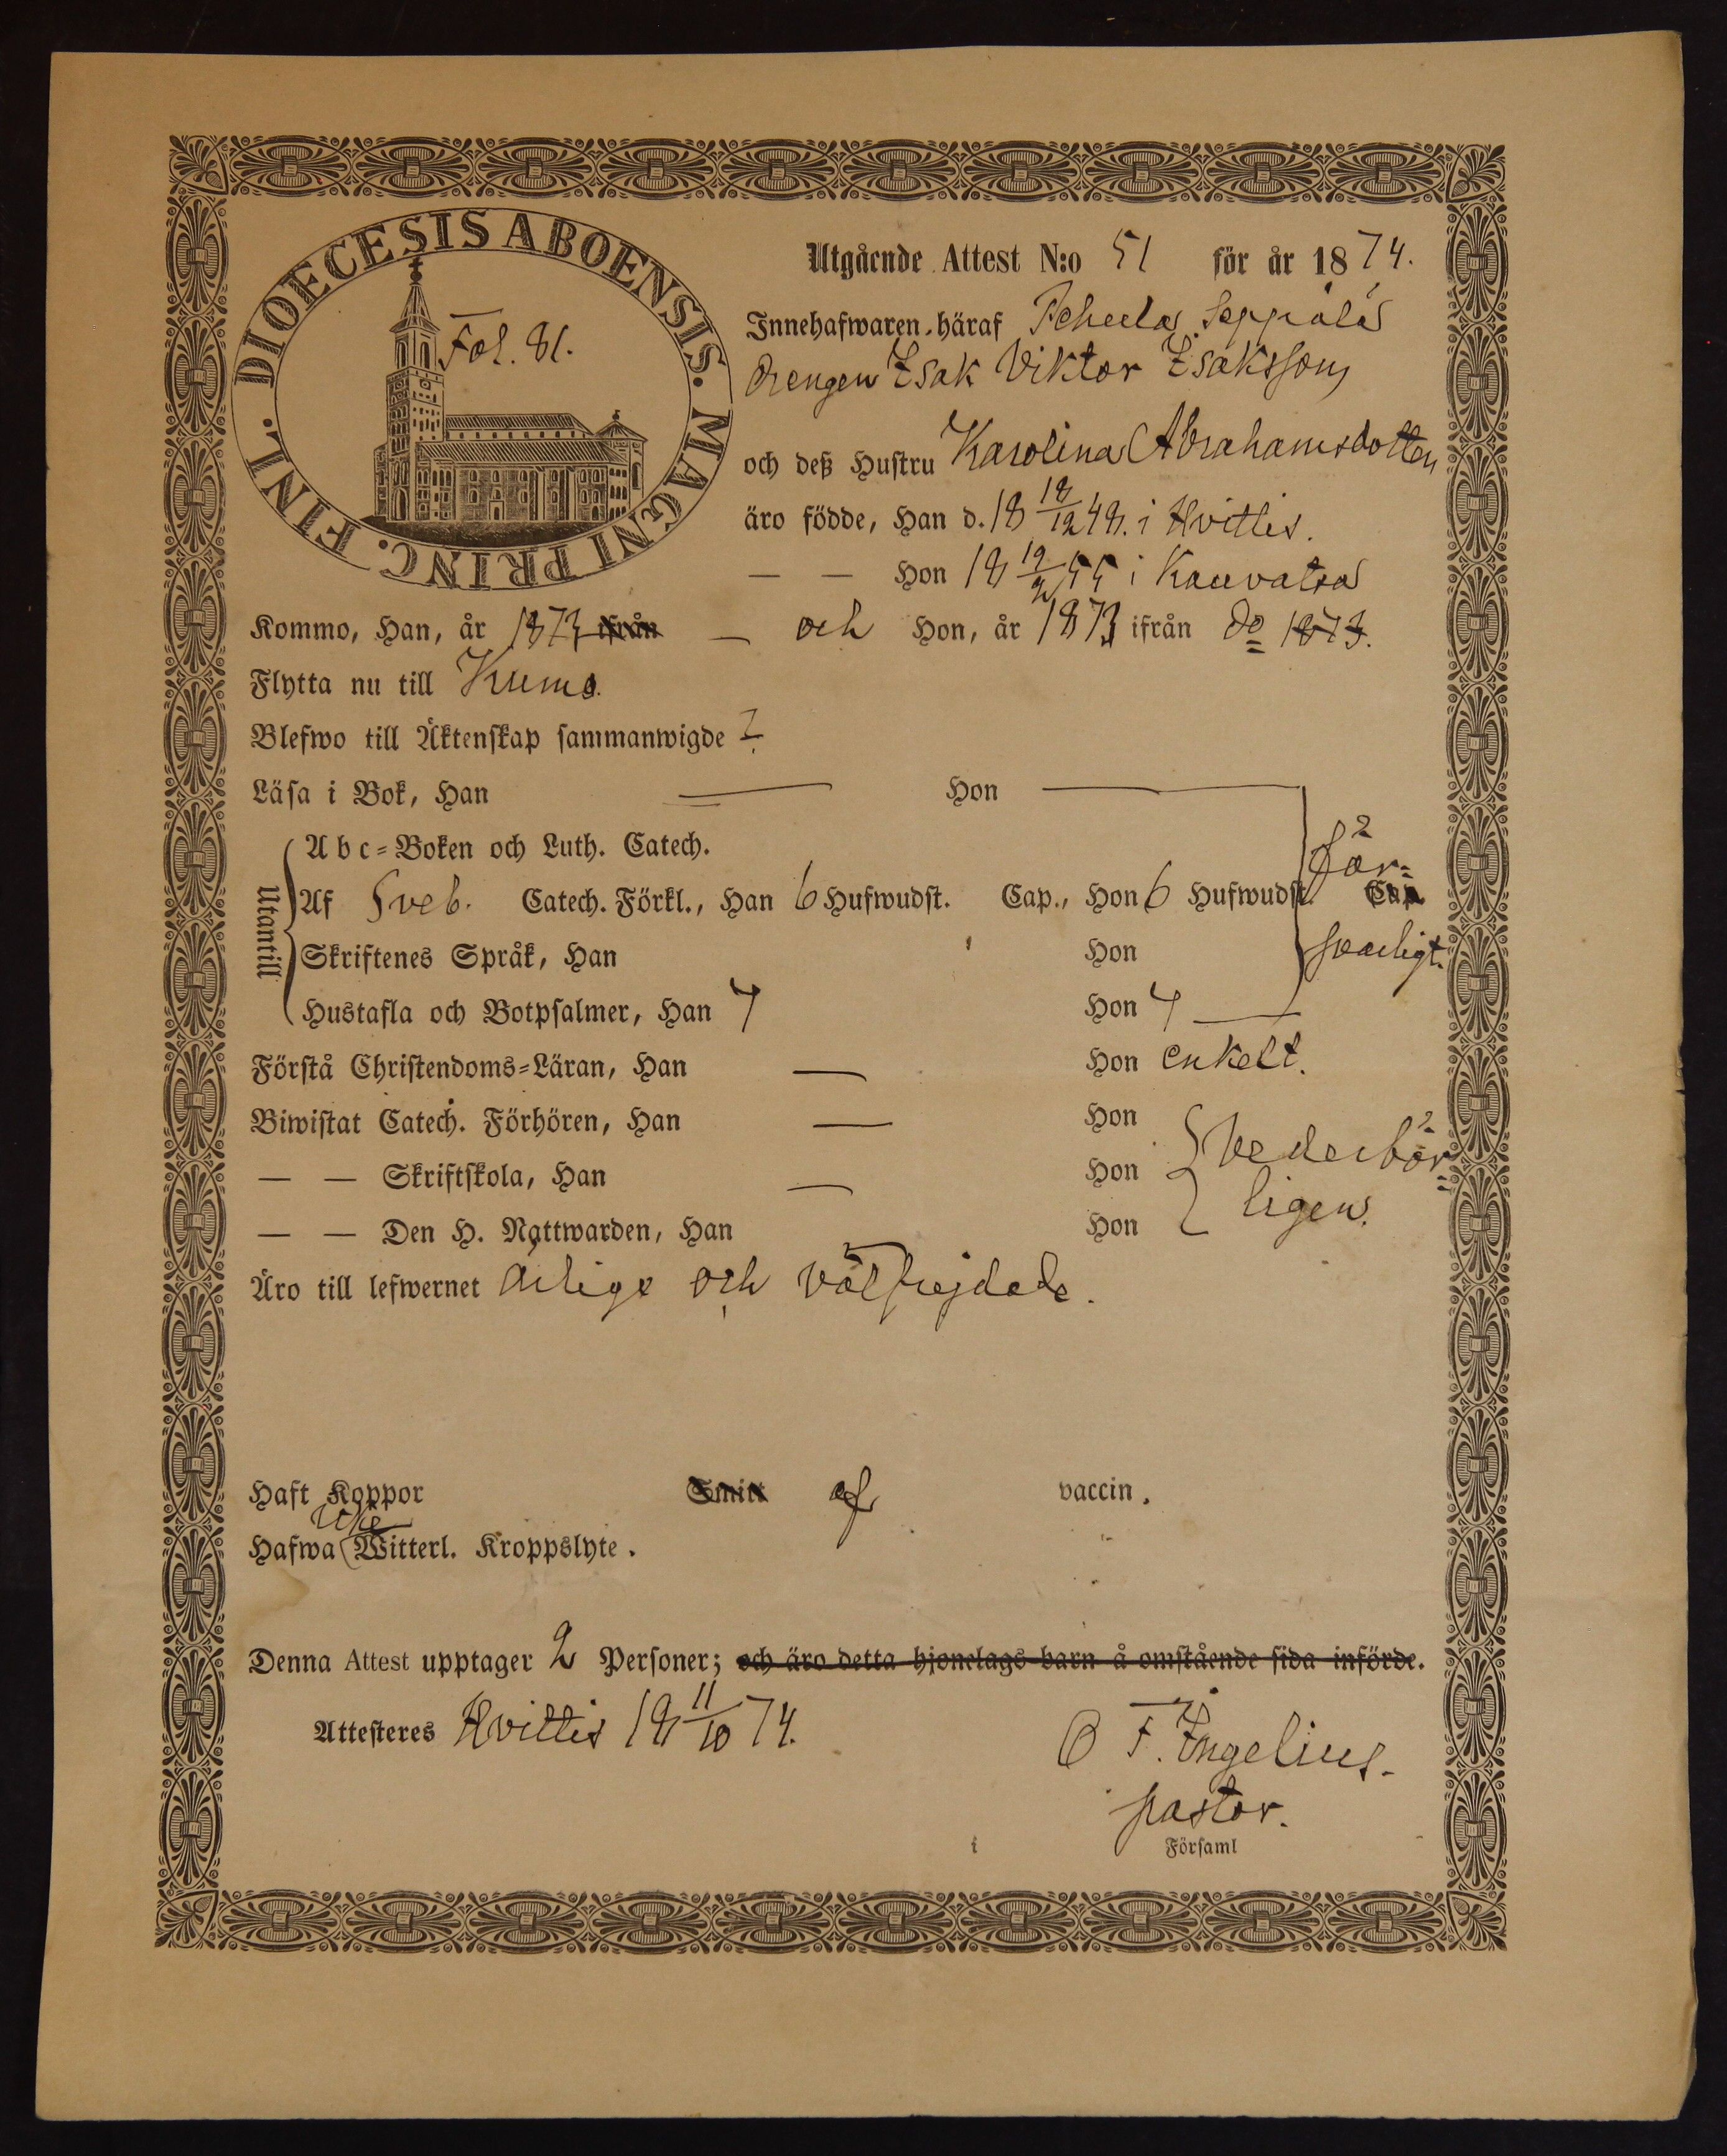 DIOECESIS ABOENSIS. MAGNI PRINC. FINL.
Fol. 81.
Utgående Attest N:o 51 för år 1874.
Innehafwaren häraf Seppälä
drengen Isak Viktor Isaksson,
och deß Hustru Karolina Abrahamsdotter
äro födde, Han d. 18 18/12 48. i Hvittis.
— — Hon 18 19/2 55 i Kauvatsa
Kommo, Han, år 1873 ifrån — och Hon, år 1873 ifrån do 1873.
Flytta nu till Kumo.
Blefwo till Äktenskap sammanwigde
Läsa i Bok, Han — Hon —
Utantill
Abc-Boken och Luth. Catech.
Af Sveb. Catech. Förkl., Han 6 Hufwudst. Cap., Hon 6 Hufwudst. Cap.
för-
svarligt.
Skriftenes Språk, Han Hon
Hustafla och Botpsalmer, Han 7 Hon 7 —
Förstå Christendoms-Läran, Han — Hon enkelt.
Biwistat Catech. Förhören, Han — Hon
— — Skriftskola, Han — Hon
— — Den H. Nattwarden, Han Hon
vederbör-
ligen.
Äro till lefwernet ärlige och välfrejdade.
Haft Koppor Smitt af vaccin.
Hafwa icke Witterl. Kroppslyte.
Denna Attest upptager 2 Personer; och äro detta hjonelags barn å omstående sida införde.
Attesteres Hvittis 18 11/10 74.
O F. Ingelius.
pastor.
i Församl